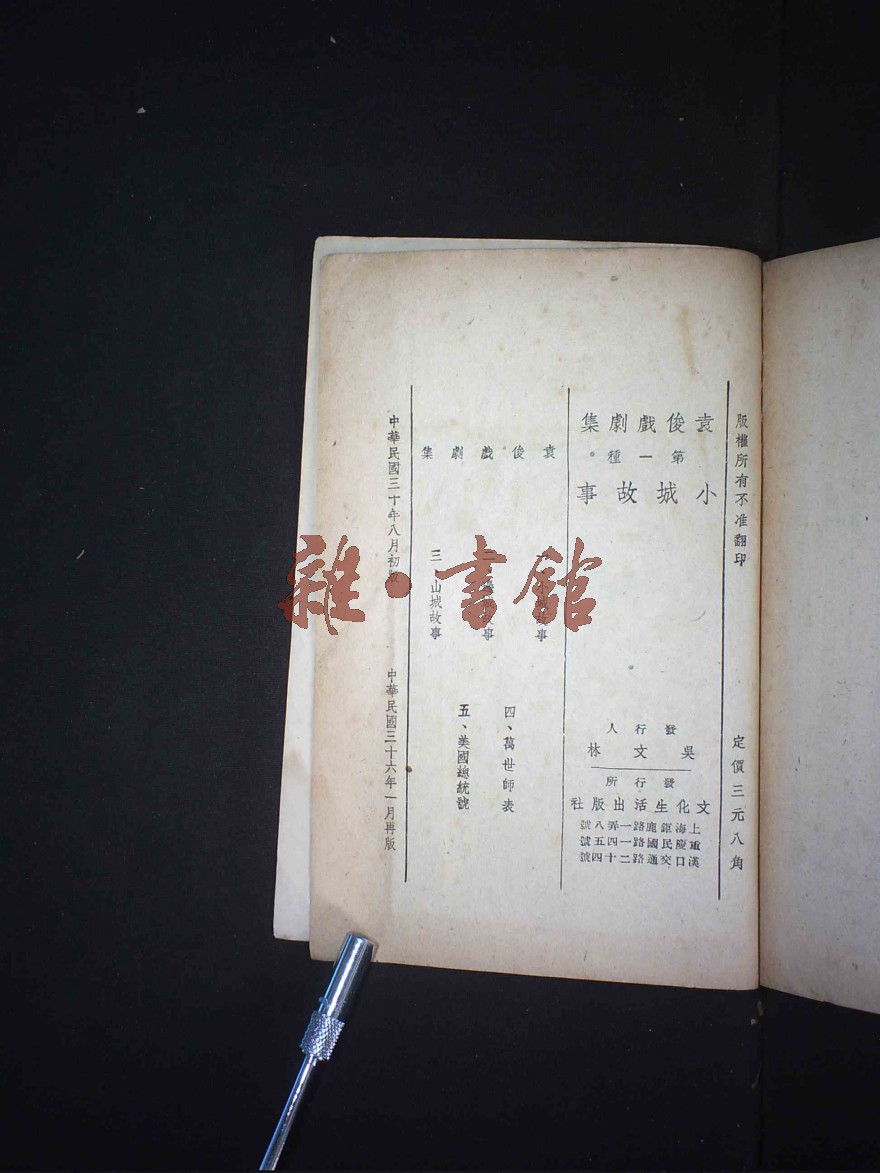 版權所有不准翻印
定價三元八角
袁俊戲劇集
第一種
小城故事
發行人
吳文林
發行所
文化生活出版社
上海鉅鹿路一弄八號
重慶民國路一四五號
漢口交通路二十四號
袁俊戲劇集
一、小城故事
事
三、山城故事
四、萬世師表
五、美國總統號
中華民國三十年八月初版
中華民國三十六年一月再版
雜·書館